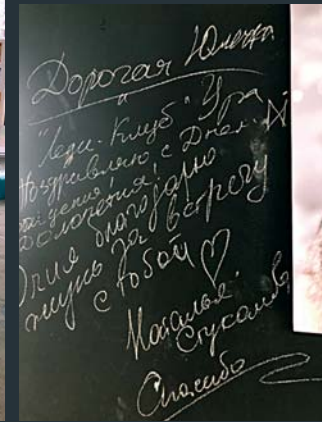 Дорогая Юлечка
и
"Леди-Клуб" Ура
Поздравляю с Днем
рождения!
Долголетия!
благодарю
жизнь за встречу
с тобой ♡
Наталья
Спасибо